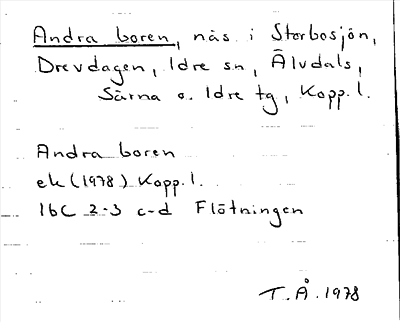 Andra boren, näs i Storbosjön,
Drevdagen, Idre sn, Älvdals,
Särna o. Idre tg, Kopp. l.
Andra boren
ek (1978) Kopp. l.
16C 2-3 c-d Flötningen
T. Å. 1978